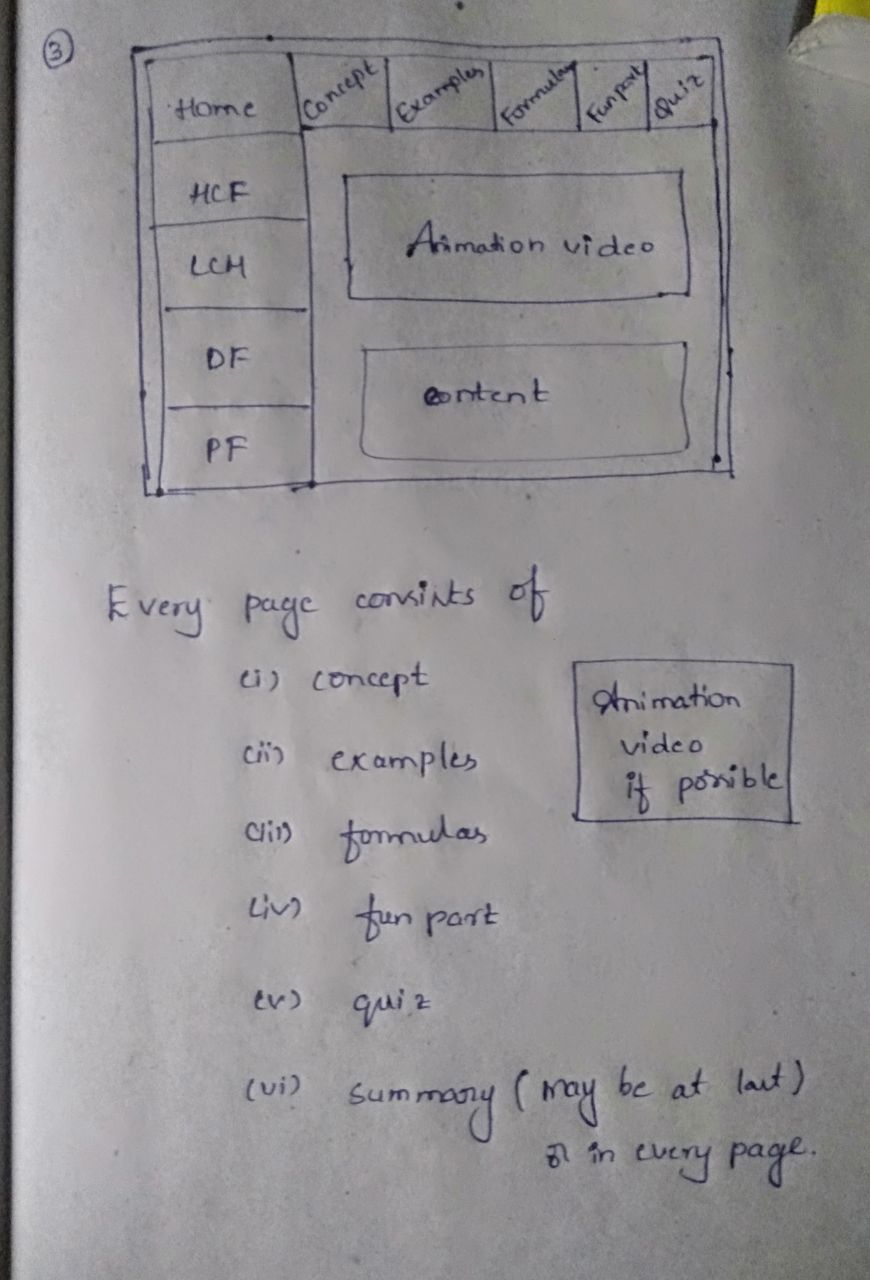 3
Home
Concept
Examples
Formulas
Fun part
Quiz
HCF
LCM
DF
PF
Animation video
content
Every page consists of
(i) concept
(ii) examples
(iii) formulas
(iv) fun part
(v) quiz
(vi) summary (may be at last)
or in every page.
Animation
video
if possible